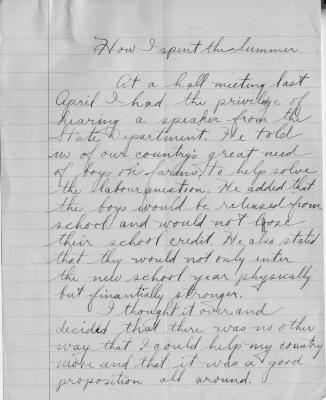 How I spent the Summer.
At a hall meeting last
April I had the privilege of
hearing a speaker from the
State Department. He told
us of our country's great need
of boys on farms, to help solve
the labour question. He added that
the boys would be released from
school and would not loose
their school credit. He also stated
that thy would not only enter
the new school year physically
but finantially stronger.
I thought it over and
decided that there was no other
way that I could help my country
more and that it was a good
proposition all around.